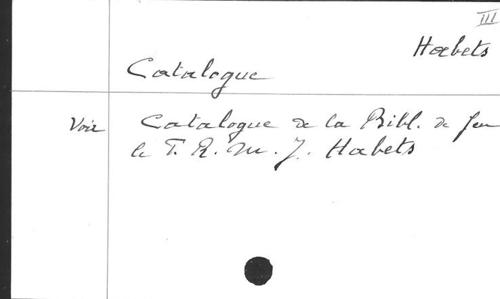 III
Habets
Catalogue
Voir Catalogue de la Bibl. de feu
le T. R. M. J. Habets